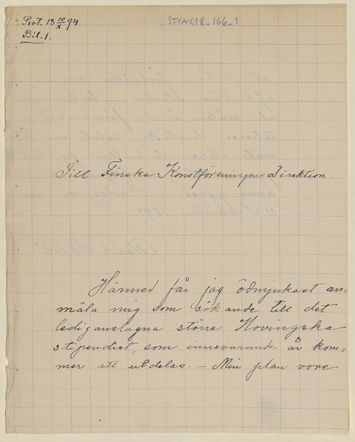 Prot. 13 10/X 94
Bil. 1.
STYAC18_166_1
Till Finska Konstföreningens Direktion.
Härmed får jag ödmjukast an-
mäla mig som sökande till det
lediganslagna större Hovingska
stipendiet, som innevarande år kom-
mer att utdelas. – Min plan vore